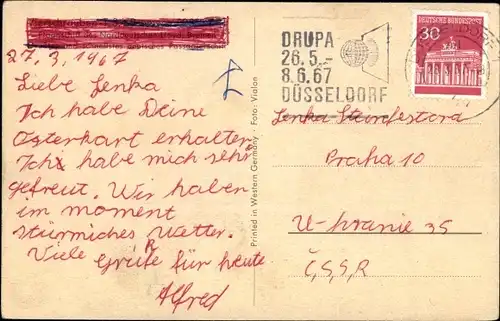 27.3.1967
Liebe Lenka
Ich habe Deine
Osterkart erhalten
Ich habe mich sehr
gefreut. Wir haben
im moment
stürmiches Wetter.
Viele Grüße für heute
Alfred
Printed in Western Germany · Foto: Violon
DRUPA
26.5.-
8.6.67
DÜSSELDORF
30
DEUTSCHE BUNDESPOST
Lenka
Praha 10
U-hranie 35
Č.S.S.R